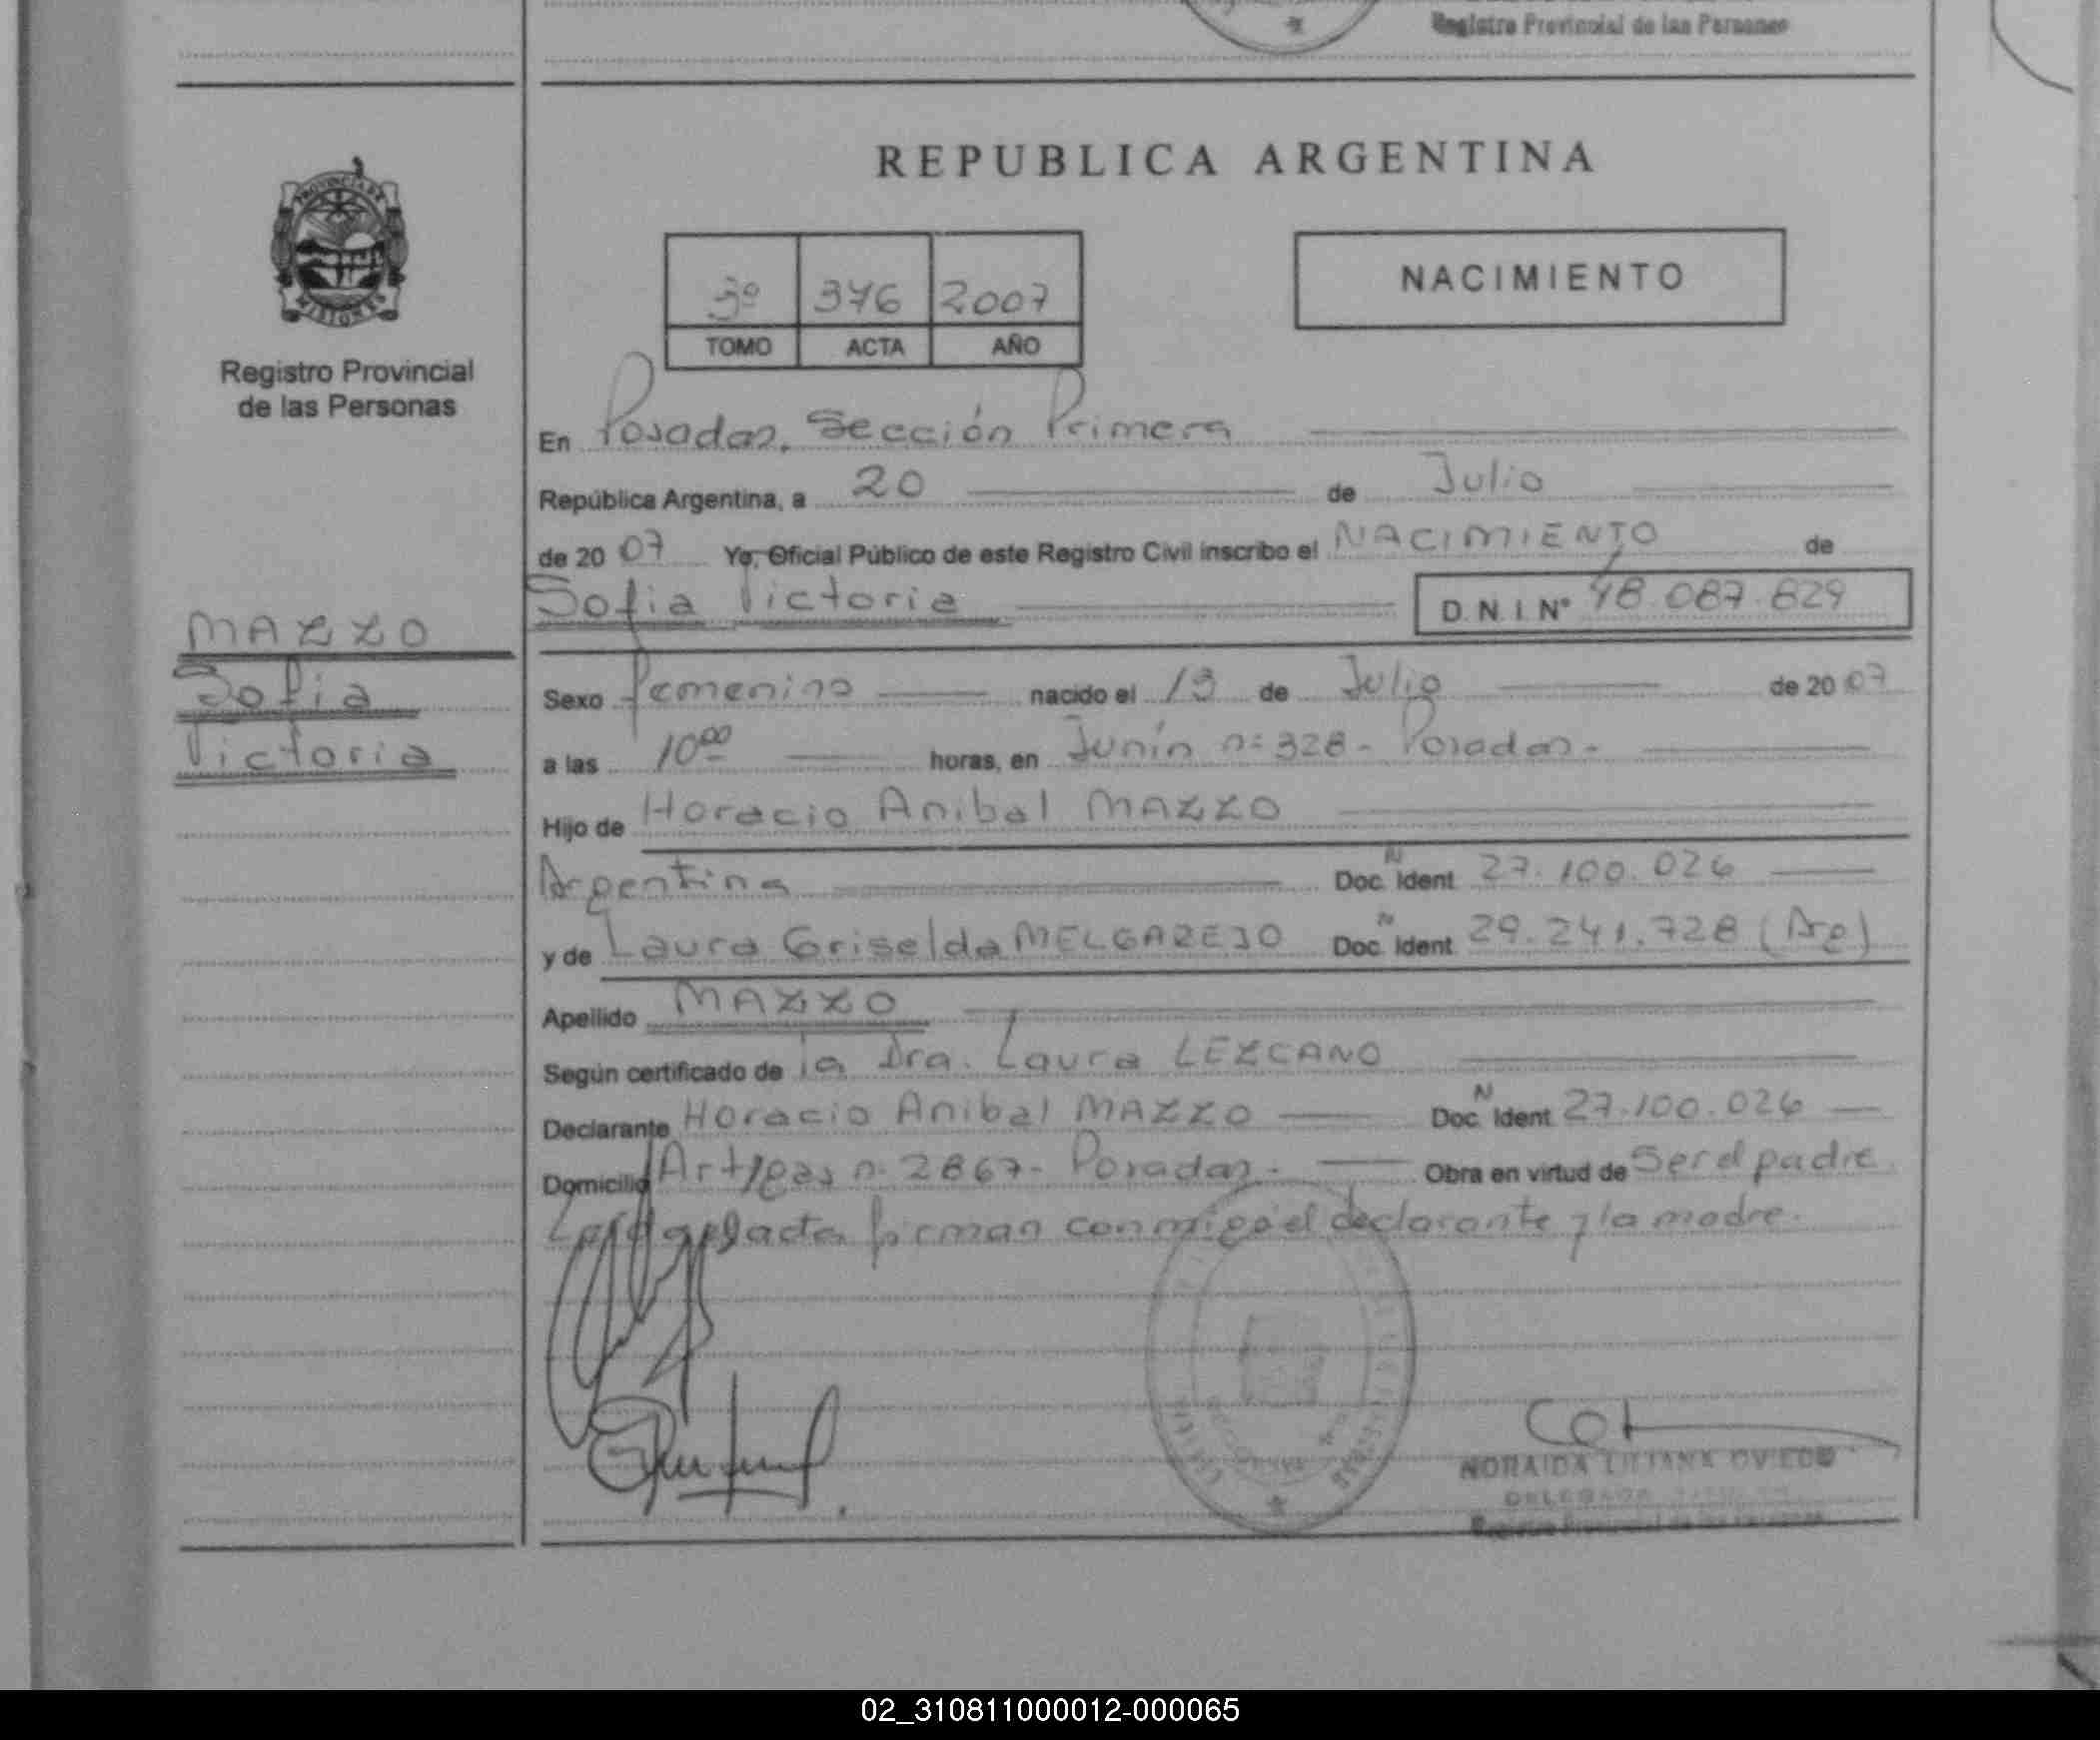 Registro Provincial de las Personas
PROVINCIA DE
MISIONES
Registro Provincial
de las Personas
REPUBLICA ARGENTINA
3º 376 2007
TOMO ACTA AÑO
NACIMIENTO
En Posadas, Sección Primera
República Argentina, a 20 de Julio
de 2007 Yo, Oficial Público de este Registro Civil inscribo el NACIMIENTO de
Sofia Victoria D.N.I. Nº 48.087.829
MAZZO
Sofia
Victoria
Sexo femenino nacido el 13 de Julio de 2007
a las 10⁰⁰ horas, en Junín nº 328 - Posadas -
Hijo de Horacio Anibal MAZZO
Argentina Doc. N Ident 27.100.026
y de Laura Griselda MELGAREJO Doc. N Ident 29.241.728 (Arg)
Apellido MAZZO
Según certificado de la Dra. Laura LEZCANO
Declarante Horacio Anibal MAZZO Doc. N Ident 27.100.026
Domicilio Artigas nº 2867 - Posadas - Obra en virtud de Ser el padre
Leída el acta firman conmigo el declarante y la madre.
NORAIDA LILIANA OVIEDO
DELEGADA
Registro Provincial de las Personas
02_310811000012-000065